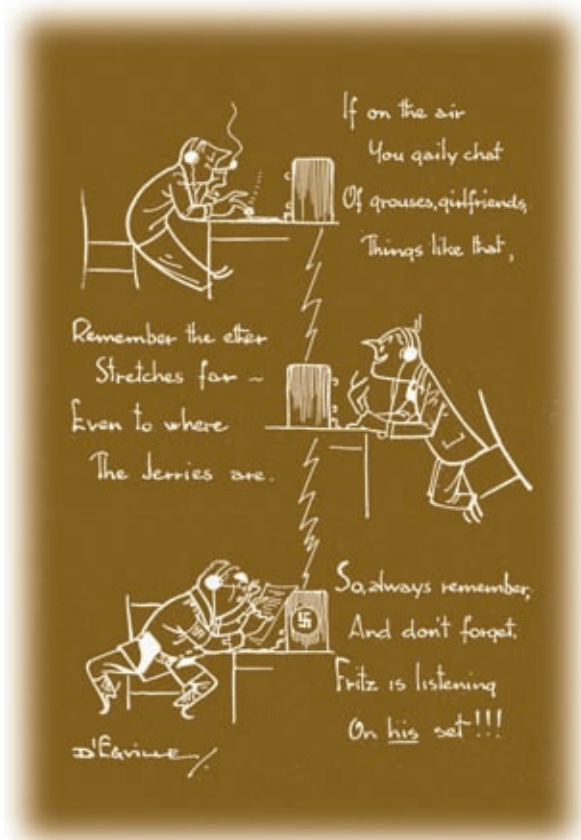 If on the air
You gaily chat
Of grouses, girlfriends,
Things like that,
Remember the ether
Stretches far ~
Even to where
The Jerries are.
So, always remember,
And don't forget,
Fritz is listening
On his set!!!
D'Egville